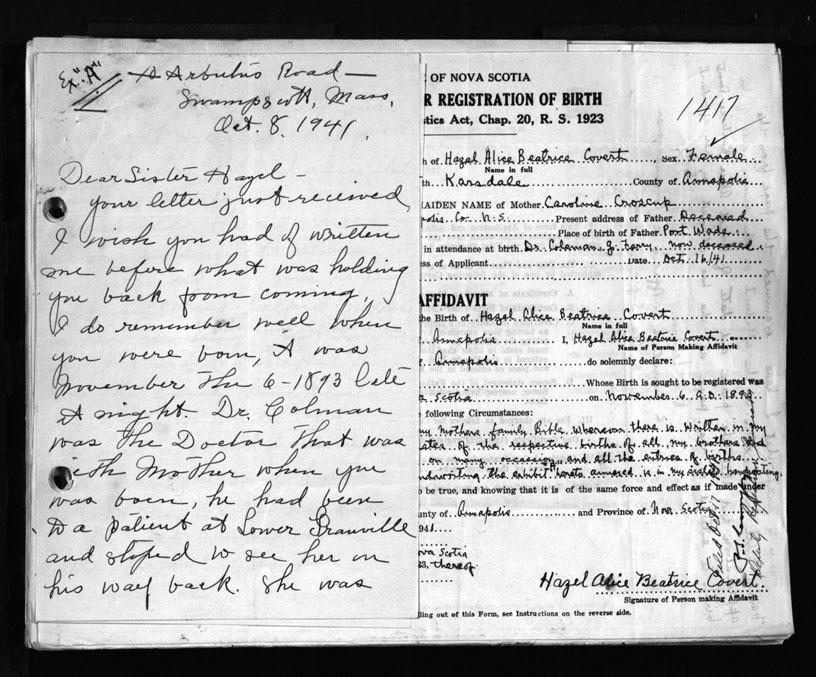 Ex. "A"
Arbutus Road —
Swampscott, Mass,
Oct. 8, 1941,
Dear Sister Hazel —
your letter just received
I wish you had of written
me before what was holding
you back from coming,
I do remember well when
you were born, it was
November the 6 - 1893 late
at night. Dr. Colman
was the Doctor that was
with Mother when you
was born, he had been
to a patient at Lower Granville
and stoped to see her on
his way back. She was
E OF NOVA SCOTIA
R REGISTRATION OF BIRTH
stics Act, Chap. 20, R. S. 1923
1417
h of Hazel Alice Beatrice Covert, Sex Female
Name in full
th Karsdale County of Annapolis
MAIDEN NAME of Mother Caroline Croscup
polis Co. N. S. Present address of Father Deceased
Place of birth of Father Port Wade
in attendance at birth Dr. Coleman, now deceased
ss of Applicant Date Oct. 16/41
AFFIDAVIT
the Birth of Hazel Alice Beatrice Covert
Name in full
Annapolis I, Hazel Alice Beatrice Covert
Name of Person Making Affidavit
Annapolis do solemnly declare:
Whose Birth is sought to be registered was
a Scotia on November 6 A.D. 1893
e following Circumstances:
my mothers family Bible wherein there is written in my
dates of the respective births of all my brothers and
on many occasions and all the entries of births
handwriting. The exhibit hereto annexed is in my sister's handwriting.
to be true, and knowing that it is of the same force and effect as if made under
unty of Annapolis and Province of Nova Scotia
1941
ova Scotia
23, thereof
Hazel Alice Beatrice Covert
Signature of Person making Affidavit
lling out of this Form, see Instructions on the reverse side.